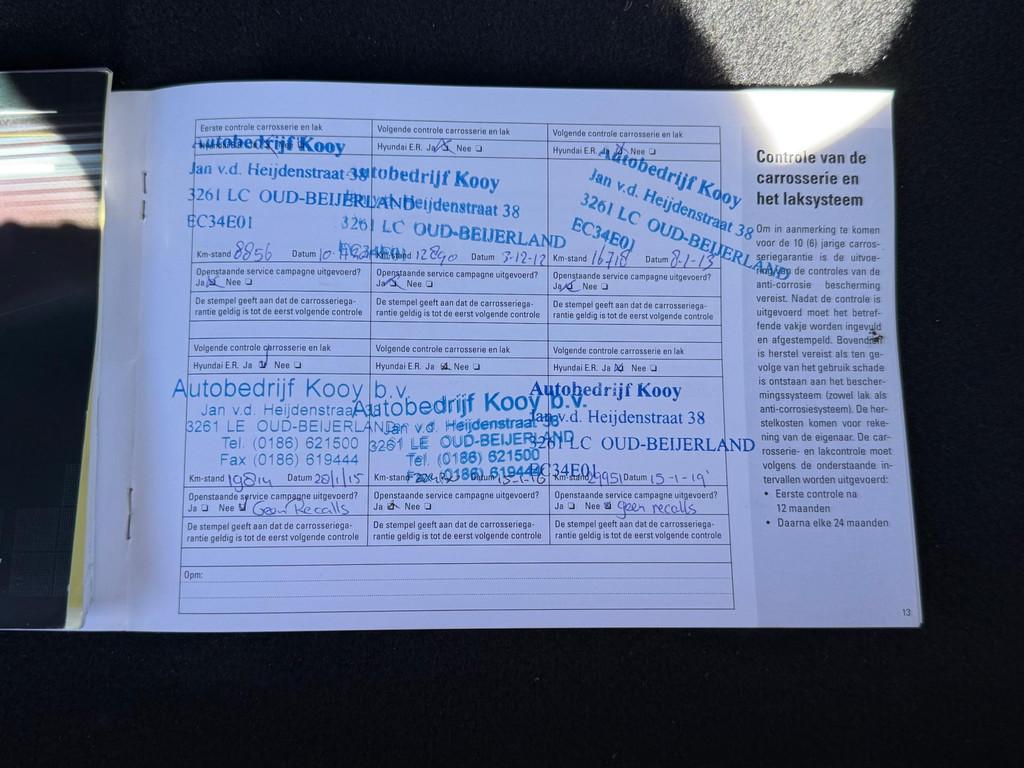 Eerste controle carrosserie en lak
Autobedrijf Kooy
Jan v.d. Heijdenstraat 38
3261 LC OUD-BEIJERLAND
EC34E01
Km-stand 8856 Datum
Openstaande service campagne uitgevoerd?
Ja ☒ Nee ☐
De stempel geeft aan dat de carrosseriega-
rantie geldig is tot de eerst volgende controle
Volgende controle carrosserie en lak
Hyundai E.R. Ja ☒ Nee ☐
Autobedrijf Kooy
Jan v.d. Heijdenstraat 38
3261 LC OUD-BEIJERLAND
EC34E01
Km-stand 12890 Datum 3-12-12
Openstaande service campagne uitgevoerd?
Ja ☒ Nee ☐
De stempel geeft aan dat de carrosseriega-
rantie geldig is tot de eerst volgende controle
Volgende controle carrosserie en lak
Hyundai E.R. Ja ☒ Nee ☐
Autobedrijf Kooy
Jan v.d. Heijdenstraat 38
3261 LC OUD-BEIJERLAND
EC34E01
Km-stand 16718 Datum 8-1-13
Openstaande service campagne uitgevoerd?
Ja ☒ Nee ☐
De stempel geeft aan dat de carrosseriega-
rantie geldig is tot de eerst volgende controle
Volgende controle carrosserie en lak
Hyundai E.R. Ja ☒ Nee ☐
Autobedrijf Kooy b.v.
Jan v.d. Heijdenstraat 38
3261 LE OUD-BEIJERLAND
Tel. (0186) 621500
Fax (0186) 619444
Km-stand 19814 Datum 20/1/15
Openstaande service campagne uitgevoerd?
Ja ☐ Nee ☒ Geen Recalls
De stempel geeft aan dat de carrosseriega-
rantie geldig is tot de eerst volgende controle
Volgende controle carrosserie en lak
Hyundai E.R. Ja ☒ Nee ☐
Autobedrijf Kooy b.v.
Jan v.d. Heijdenstraat 38
3261 LE OUD-BEIJERLAND
Tel. (0186) 621500
Fax (0186) 619444
Km-stand Datum 15-1-16
Openstaande service campagne uitgevoerd?
Ja ☒ Nee ☐
De stempel geeft aan dat de carrosseriega-
rantie geldig is tot de eerst volgende controle
Volgende controle carrosserie en lak
Hyundai E.R. Ja ☒ Nee ☐
Autobedrijf Kooy
Jan v.d. Heijdenstraat 38
3261 LC OUD-BEIJERLAND
EC34E01
Km-stand 29951 Datum 15-1-19
Openstaande service campagne uitgevoerd?
Ja ☐ Nee ☒ geen recalls
De stempel geeft aan dat de carrosseriega-
rantie geldig is tot de eerst volgende controle
Opm:
Controle van de
carrosserie en
het laksysteem
Om in aanmerking te komen
voor de 10 (6) jarige carros-
seriegarantie is de uitvoe-
ring van de controles van de
anti-corrosie bescherming
vereist. Nadat de controle is
uitgevoerd moet het betref-
fende vakje worden ingevuld
en afgestempeld. Bovendien
is herstel vereist als ten ge-
volge van het gebruik schade
is ontstaan aan het bescher-
mingssysteem (zowel lak als
anti-corrosiesysteem). De her-
stelkosten komen voor reke-
ning van de eigenaar. De car-
rosserie- en lakcontrole moet
volgens de onderstaande in-
tervallen worden uitgevoerd:
• Eerste controle na
12 maanden
• Daarna elke 24 maanden
13